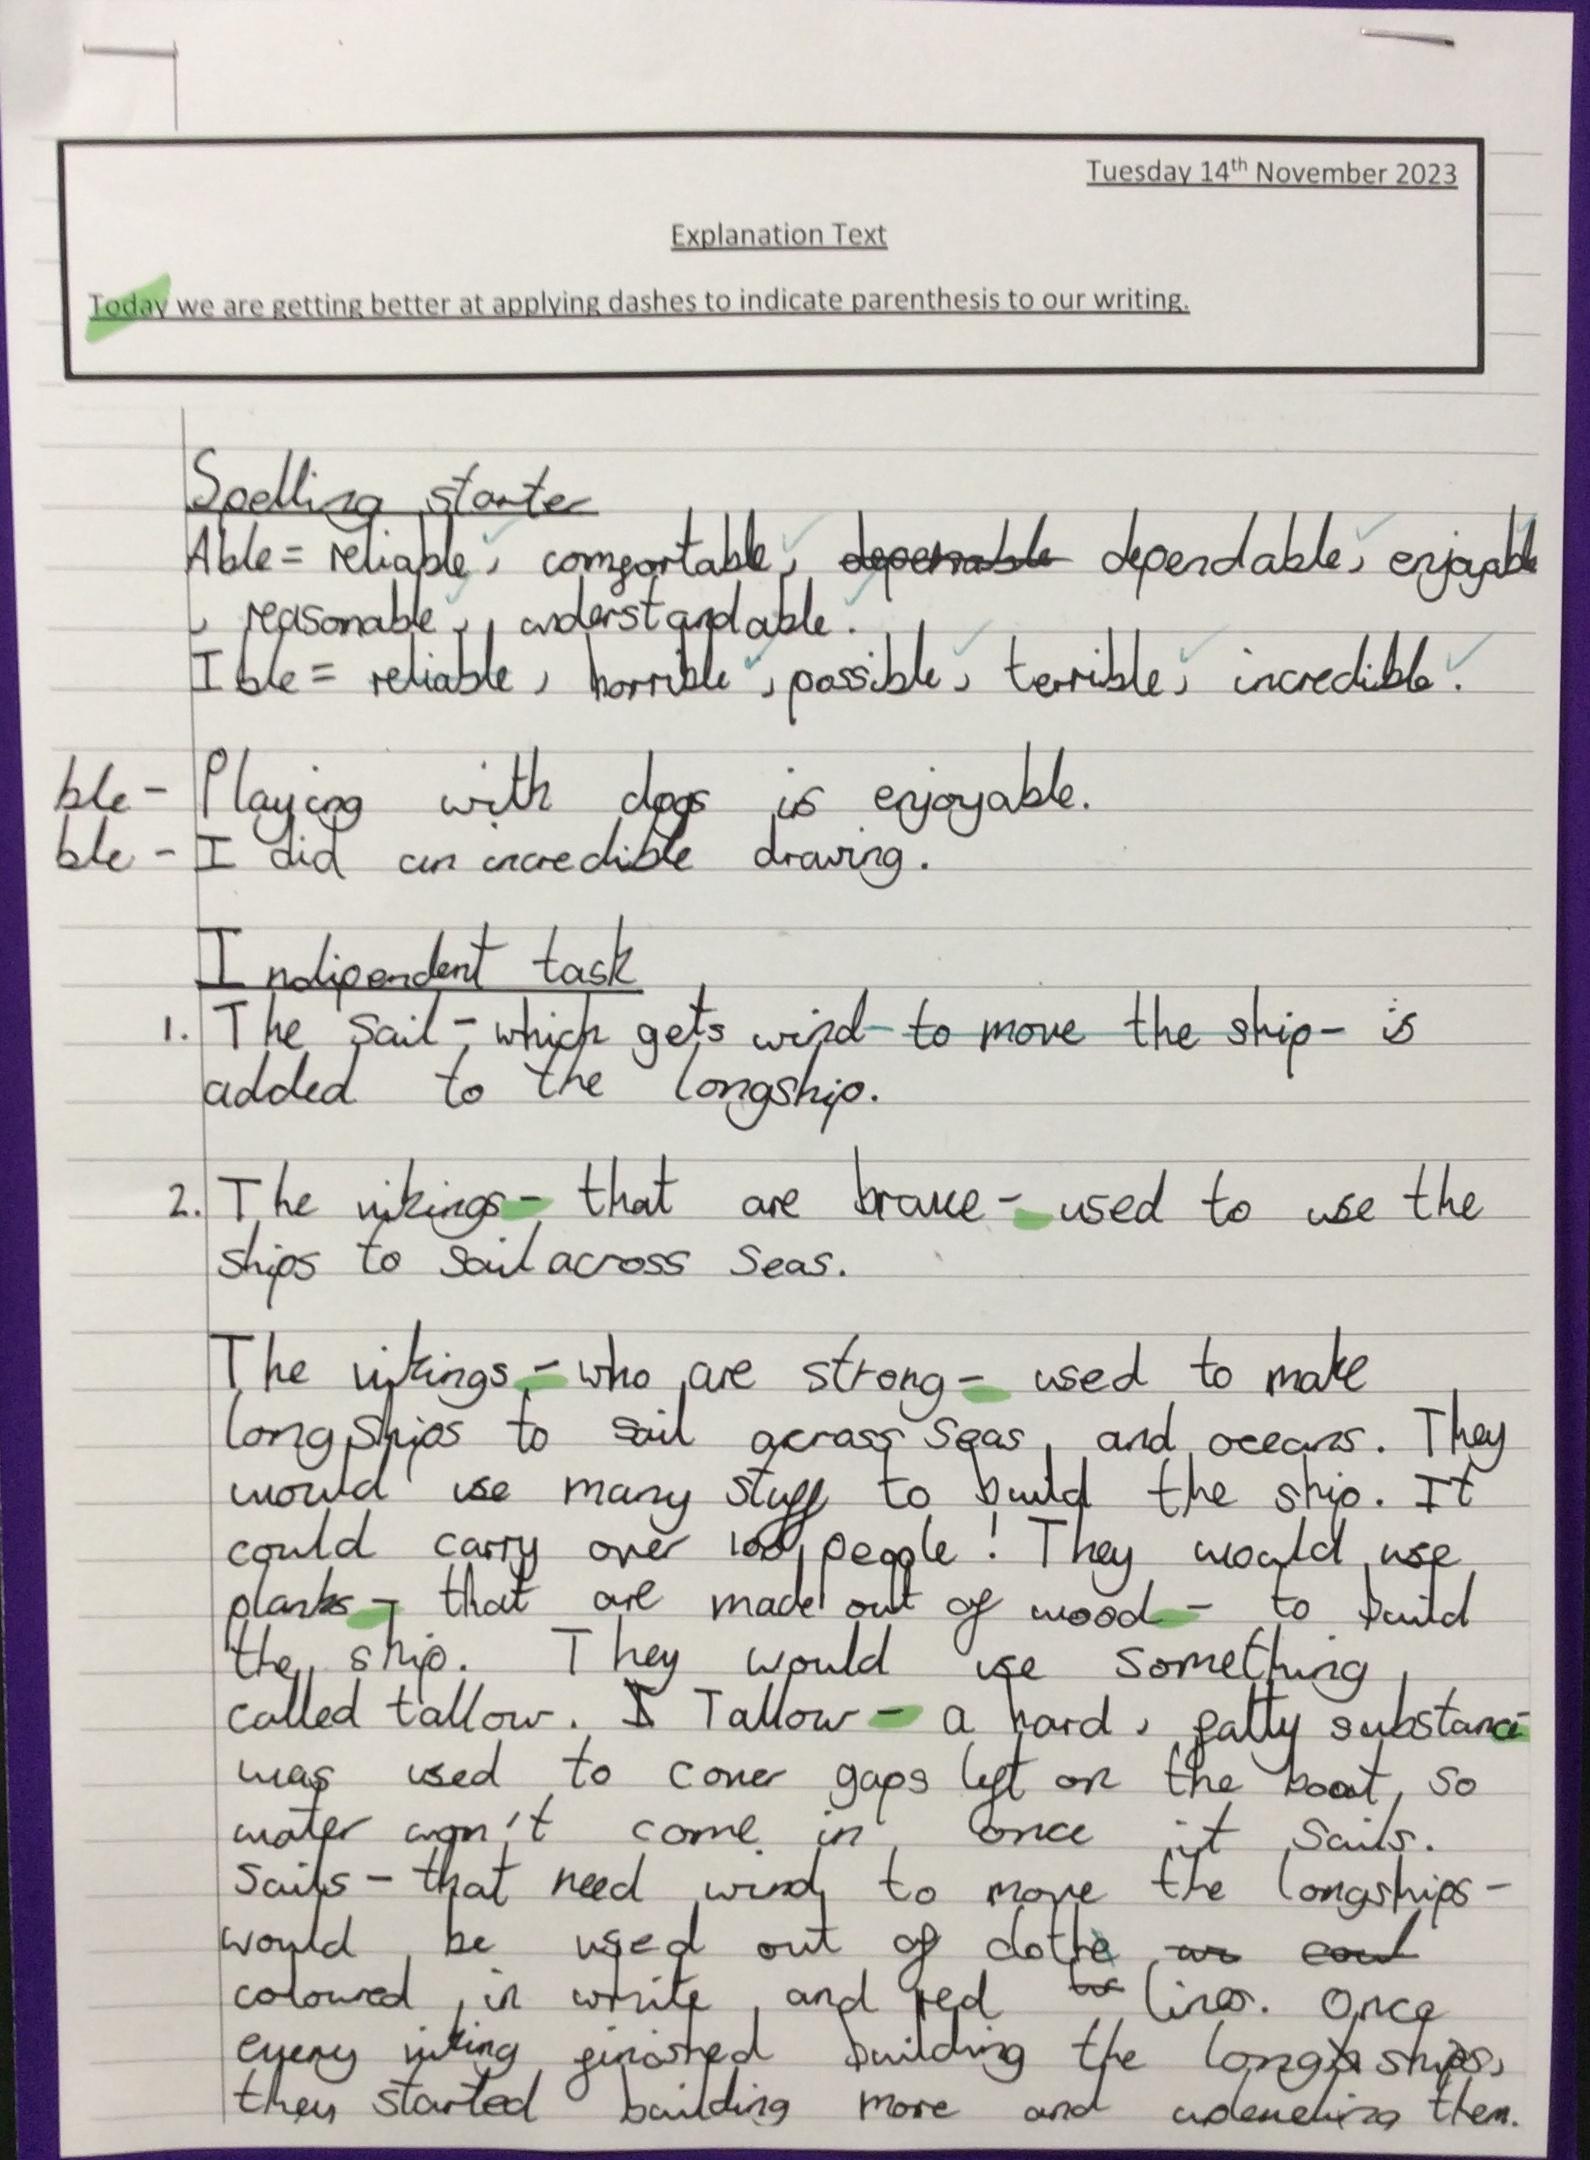 Tuesday 14th November 2023
Explanation Text
Today we are getting better at applying dashes to indicate parenthesis to our writing.
Spelling starter
Able = reliable, comfortable, depenable dependable, enjoyable
, reasonable, understandable.
Ible = reliable, horrible, possible, terrible, incredible.
ble - Playing with dogs is enjoyable.
ble - I did an incredible drawing.
Indipendent task
1. The sail - which gets wind - to move the ship - is
added to the longship.
2. The vikings - that are brave - used to use the
ships to sail across seas.
The vikings - who are strong - used to make
longships to sail across seas, and oceans. They
would use many stuff to build the ship. It
could carry over 100 people! They would use
planks - that are made out of wood - to build
the ship. They would use something
called tallow. I Tallow - a hard, fatty substance
was used to cover gaps left on the boat, so
water won't come in, once it sails.
Sails - that need wind, to move the longships -
would be used out of clothe
coloured in white, and red lines. Once
every viking finished building the longships,
they started building more and them.